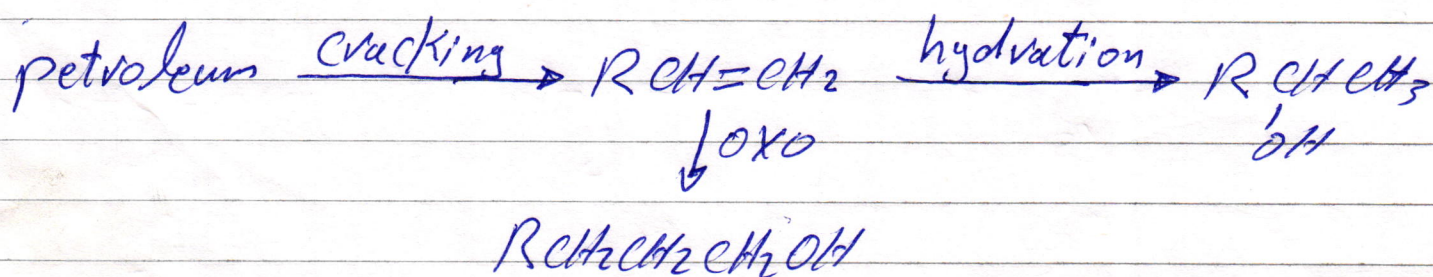 petroleum cracking RCH=CH2 hydration RCHCH3
OXO OH
RCH2CH2CH2OH